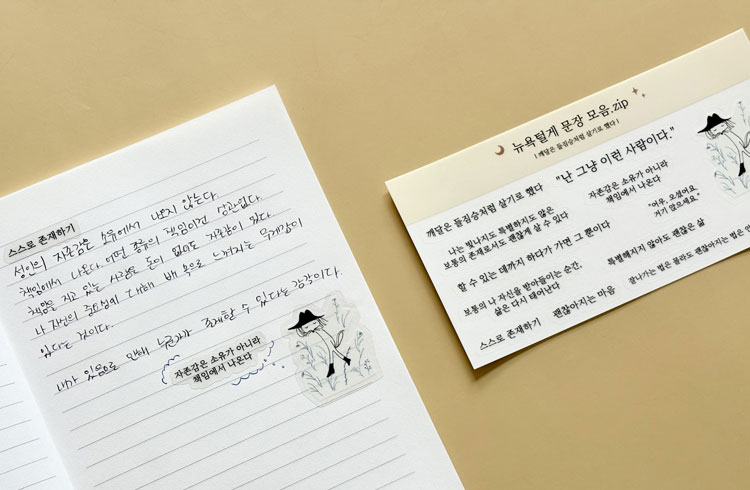 스스로 존재하기
성인의 자존감은 소유에서 나오지 않는다.
책임에서 나온다. 어떤 종류의 책임이건 상관없다.
책임을 지고 있는 사람은 돈이 없어도 자존감이 있다.
나 자신의 중요성에 대해 뱃속으로 느껴지는 무게감이
있다는 것이다.
내가 있음으로 인해 누군가가 존재할 수 있다는 감각이다.
자존감은 소유가 아니라
책임에서 나온다
뉴욕털게 문장 모음.zip
| 깨달은 들짐승처럼 살기로 했다 |
깨달은 들짐승처럼 살기로 했다
"난 그냥 이런 사람이다."
나는 빛나지도 특별하지도 않은
보통의 존재로서도 괜찮게 살 수 있다
자존감은 소유가 아니라
책임에서 나온다
할 수 있는 데까지 하다가 가면 그 뿐이다
"어우, 오셨어요
거기 앉으세요."
보통의 나 자신을 받아들이는 순간,
삶은 다시 태어난다
특별해지지 않아도 괜찮은 삶
스스로 존재하기
괜찮아지는 마음
잘나가는 법은 몰라도 괜찮아지는 법은 안